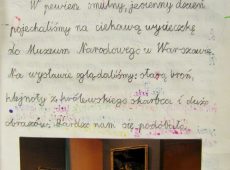 W pewien smutny, jesienny dzień
pojechaliśmy na ciekawą wycieczkę
do Muzeum Narodowego w Warszawie.
Na wystawie oglądaliśmy: starą broń,
klejnoty z królewskiego skarbca i dużo
obrazów. Bardzo nam się podobało.